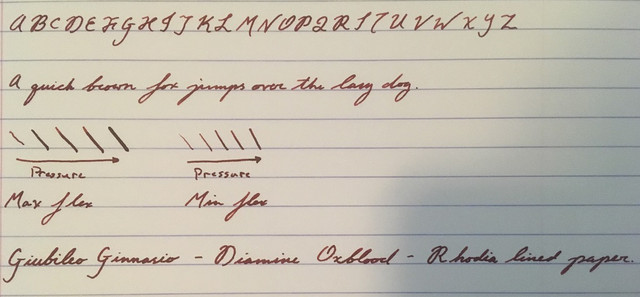 A B C D E F G H I J K L M N O P Q R S T U V W X Y Z
A quick brown fox jumps over the lazy dog.
Pressure Pressure
Max flex Min flex
Giubileo Ginnasio - Diamine Oxblood - Rhodia lined paper.